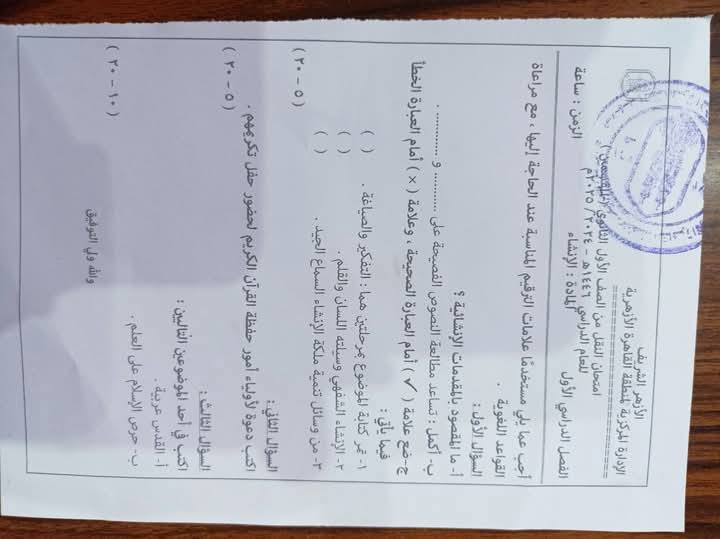 الأزهر الشريف
الإدارة المركزية لمنطقة القاهرة الأزهرية
امتحان النقل من الصف الأول الثانوي (للقسمين)
للعام الدراسي ١٤٤٦هـ - ٢٠٢٤/ ٢٠٢٥م
الفصل الدراسي الأول المادة : الإنشاء الزمن : ساعة
أجب عما يلي مستخدمًا علامات الترقيم المناسبة عند الحاجة إليها ، مع مراعاة
القواعد اللغوية .
السؤال الأول :
أ- ما المقصود بالمقدمات الإنشائية ؟
ب- أكمل : تساعد مطالعة النصوص الفصيحة على .......... و .......... .
ج- ضع علامة ( ✓ ) أمام العبارة الصحيحة ، وعلامة ( × ) أمام العبارة الخطأ
فيما يأتي :
١- تمر كتابة الموضوع بمرحلتين هما : التفكير والصياغة . ( )
٢- الإنشاء الشفهي وسيلته اللسان والقلم . ( )
٣- من وسائل تنمية ملكة الإنشاء السماع الجيد . ( )
( ٥ - ٢٠ )
السؤال الثاني :
اكتب دعوة لأولياء أمور حفظة القرآن الكريم لحضور حفل تكريمهم .
( ٥ - ٢٠ )
السؤال الثالث :
اكتب في أحد الموضوعين التاليين :
أ- القدس عربية .
ب- حرص الإسلام على العلم .
( ١٠ - ٢٠ )
والله ولي التوفيق